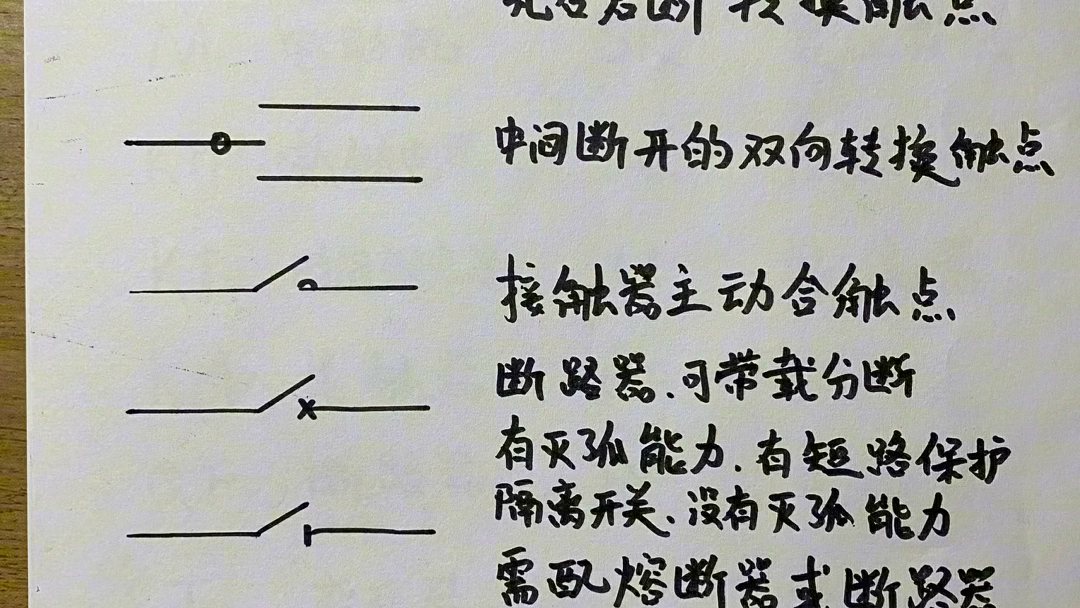 先合后断转换触点
中间断开的双向转换触点
接触器主动合触点
断路器、可带载分断
有灭弧能力、有短路保护
隔离开关、没有灭弧能力
需配熔断器或断路器